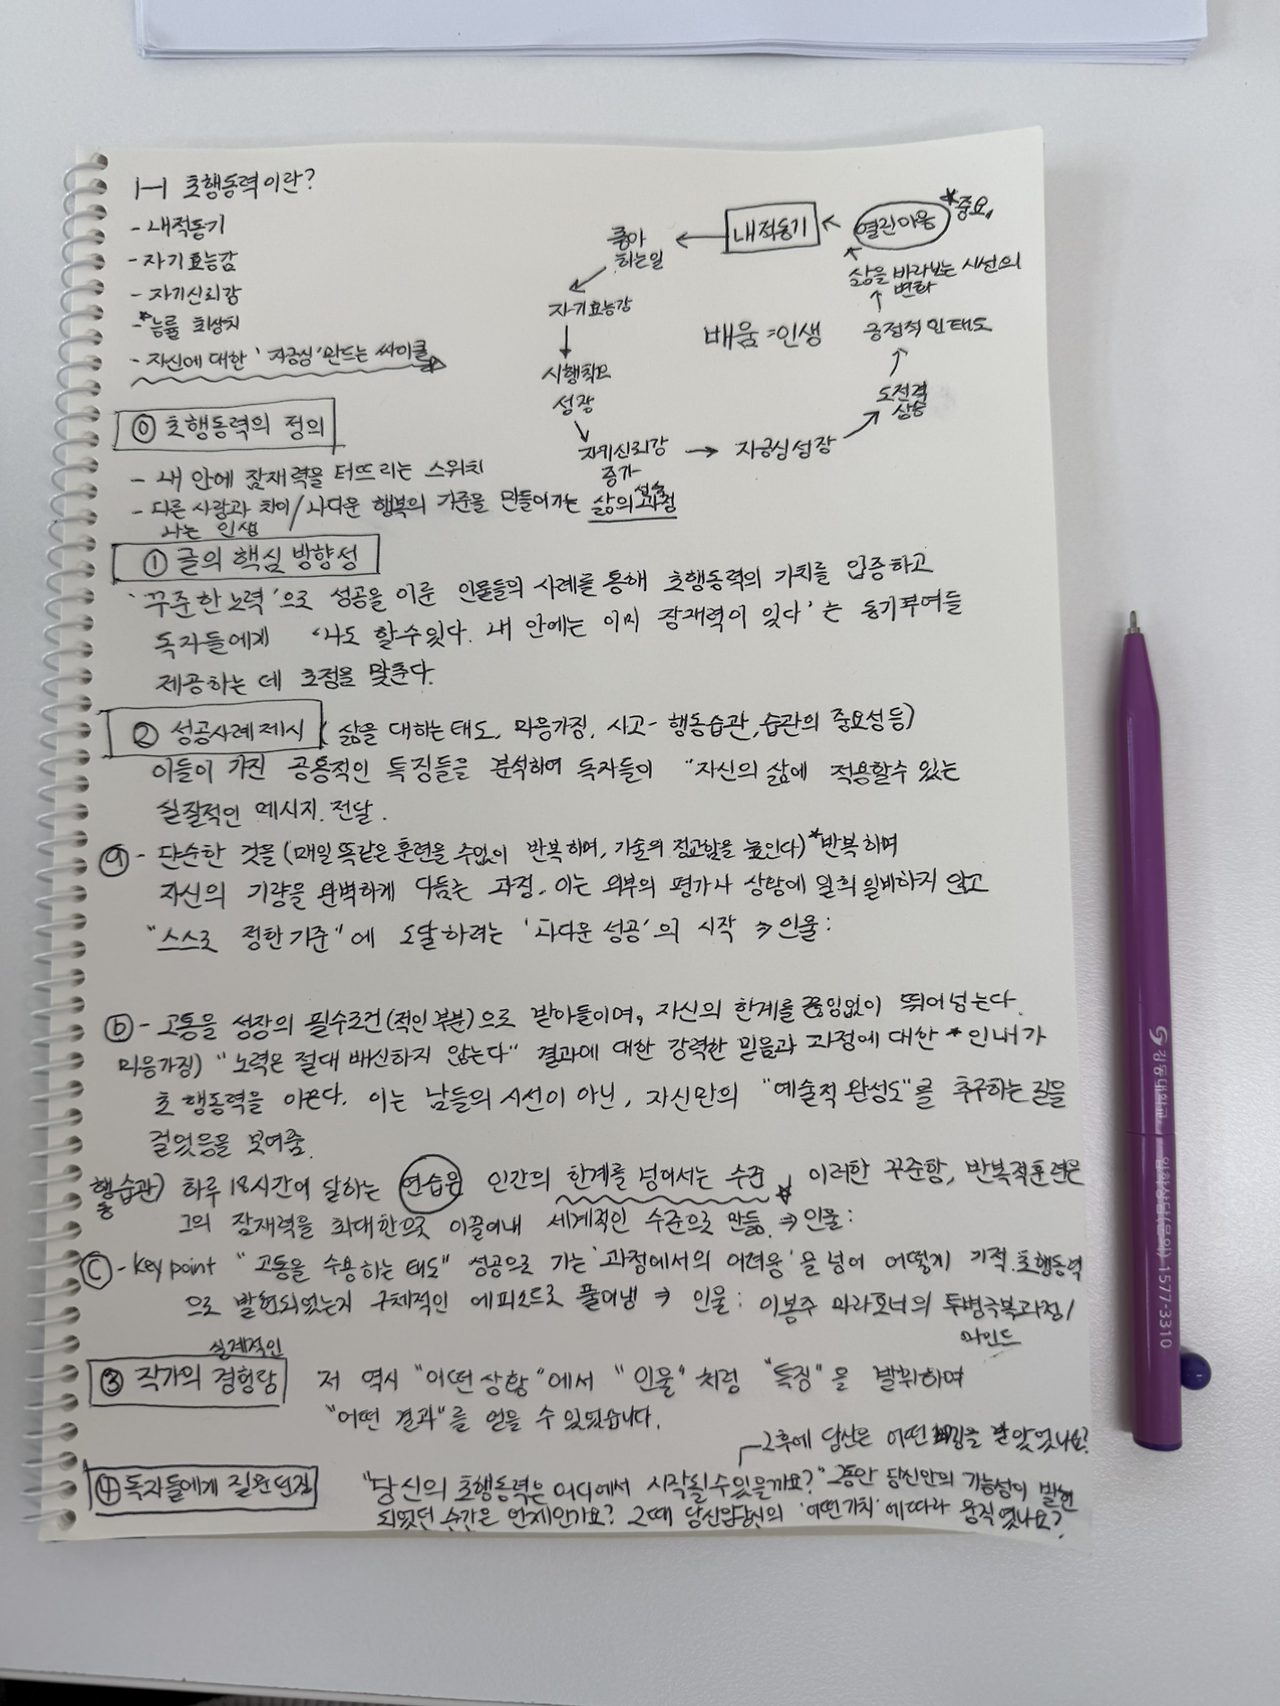 1-1 초행동력이란?
- 내적동기
- 자기효능감
- 자기신뢰감
- *능률 최상치
- 자신에 대한 '자긍심' 만드는 싸이클
내적동기
열린마음
*중요
좋아
하는일
자기효능감
시행착오
성장
자기신뢰감
증가
자긍심 성장
도전력
상승
긍정적 인 태도
삶을 바라보는 시선의
변화
배움 = 인생
⓪ 초행동력의 정의
- 내 안에 잠재력을 터뜨리는 스위치
- 다른 사람과 차이/나다운 행복의 기준을 만들어가는 삶의 과정
나는 인생
① 글의 핵심 방향성
'꾸준한 노력'으로 성공을 이룬 인물들의 사례를 통해 초행동력의 가치를 입증하고
독자들에게 '나도 할수있다. 내 안에는 이미 잠재력이 있다'는 동기부여를
제공하는 데 초점을 맞춘다.
② 성공사례 제시 (삶을 대하는 태도, 마음가짐, 사고-행동습관, 습관의 중요성 등)
이들이 가진 공통적인 특징들을 분석하여 독자들이 "자신의 삶에 적용할수 있는
실질적인 메시지. 전달.
ⓐ - 단순한 것을 (매일 똑같은 훈련을 수없이 반복하며, 기술의 정교함을 높인다) *반복하며
자신의 기량을 완벽하게 다듬는 과정. 이는 외부의 평가나 상황에 일희일비하지 않고
"스스로 정한 기준"에 도달하려는 '나다운 성공'의 시작 ⇒ 인물:
ⓑ - 고통을 성장의 필수조건(적인 부분)으로 받아들이며, 자신의 한계를 끊임없이 뛰어넘는다.
마음가짐) "노력은 절대 배신하지 않는다" 결과에 대한 강력한 믿음과 과정에 대한 *인내가
초행동력을 이끈다. 이는 남들의 시선이 아닌, 자신만의 "예술적 완성도"를 추구하는 길을
걸었음을 보여줌.
행동습관) 하루 18시간에 달하는 연습은 인간의 한계를 넘어서는 수준 이러한 꾸준함, 반복적훈련은
그의 잠재력을 최대한으로 이끌어내 세계적인 수준으로 만듦. ⇒ 인물:
ⓒ - Key point "고통을 수용하는 태도" 성공으로 가는 '과정에서의 어려움'을 넘어 어떻게 기적.초행동력
으로 발현되었는지 구체적인 에피소드로 풀어냄 ⇒ 인물: 이봉주 마라토너의 투병극복과정/
마인드
실제적인
③ 작가의 경험담 저 역시 "어떤 상황"에서 "인물"처럼 "특징"을 발휘하여
"어떤 결과"를 얻을 수 있었습니다.
그후에 당신은 어떤 을 았었나요?
④ 독자들에게 질문 던짐 "당신의 초행동력은 어디에서 시작될수있을까요?" 그동안 당신만의 가능성이 발현
되었던 순간은 언제인가요? 그때 당신의 '어떤가치'에 따라 움직였나요?
강동대학교
입학상담(문의) 1577-3310